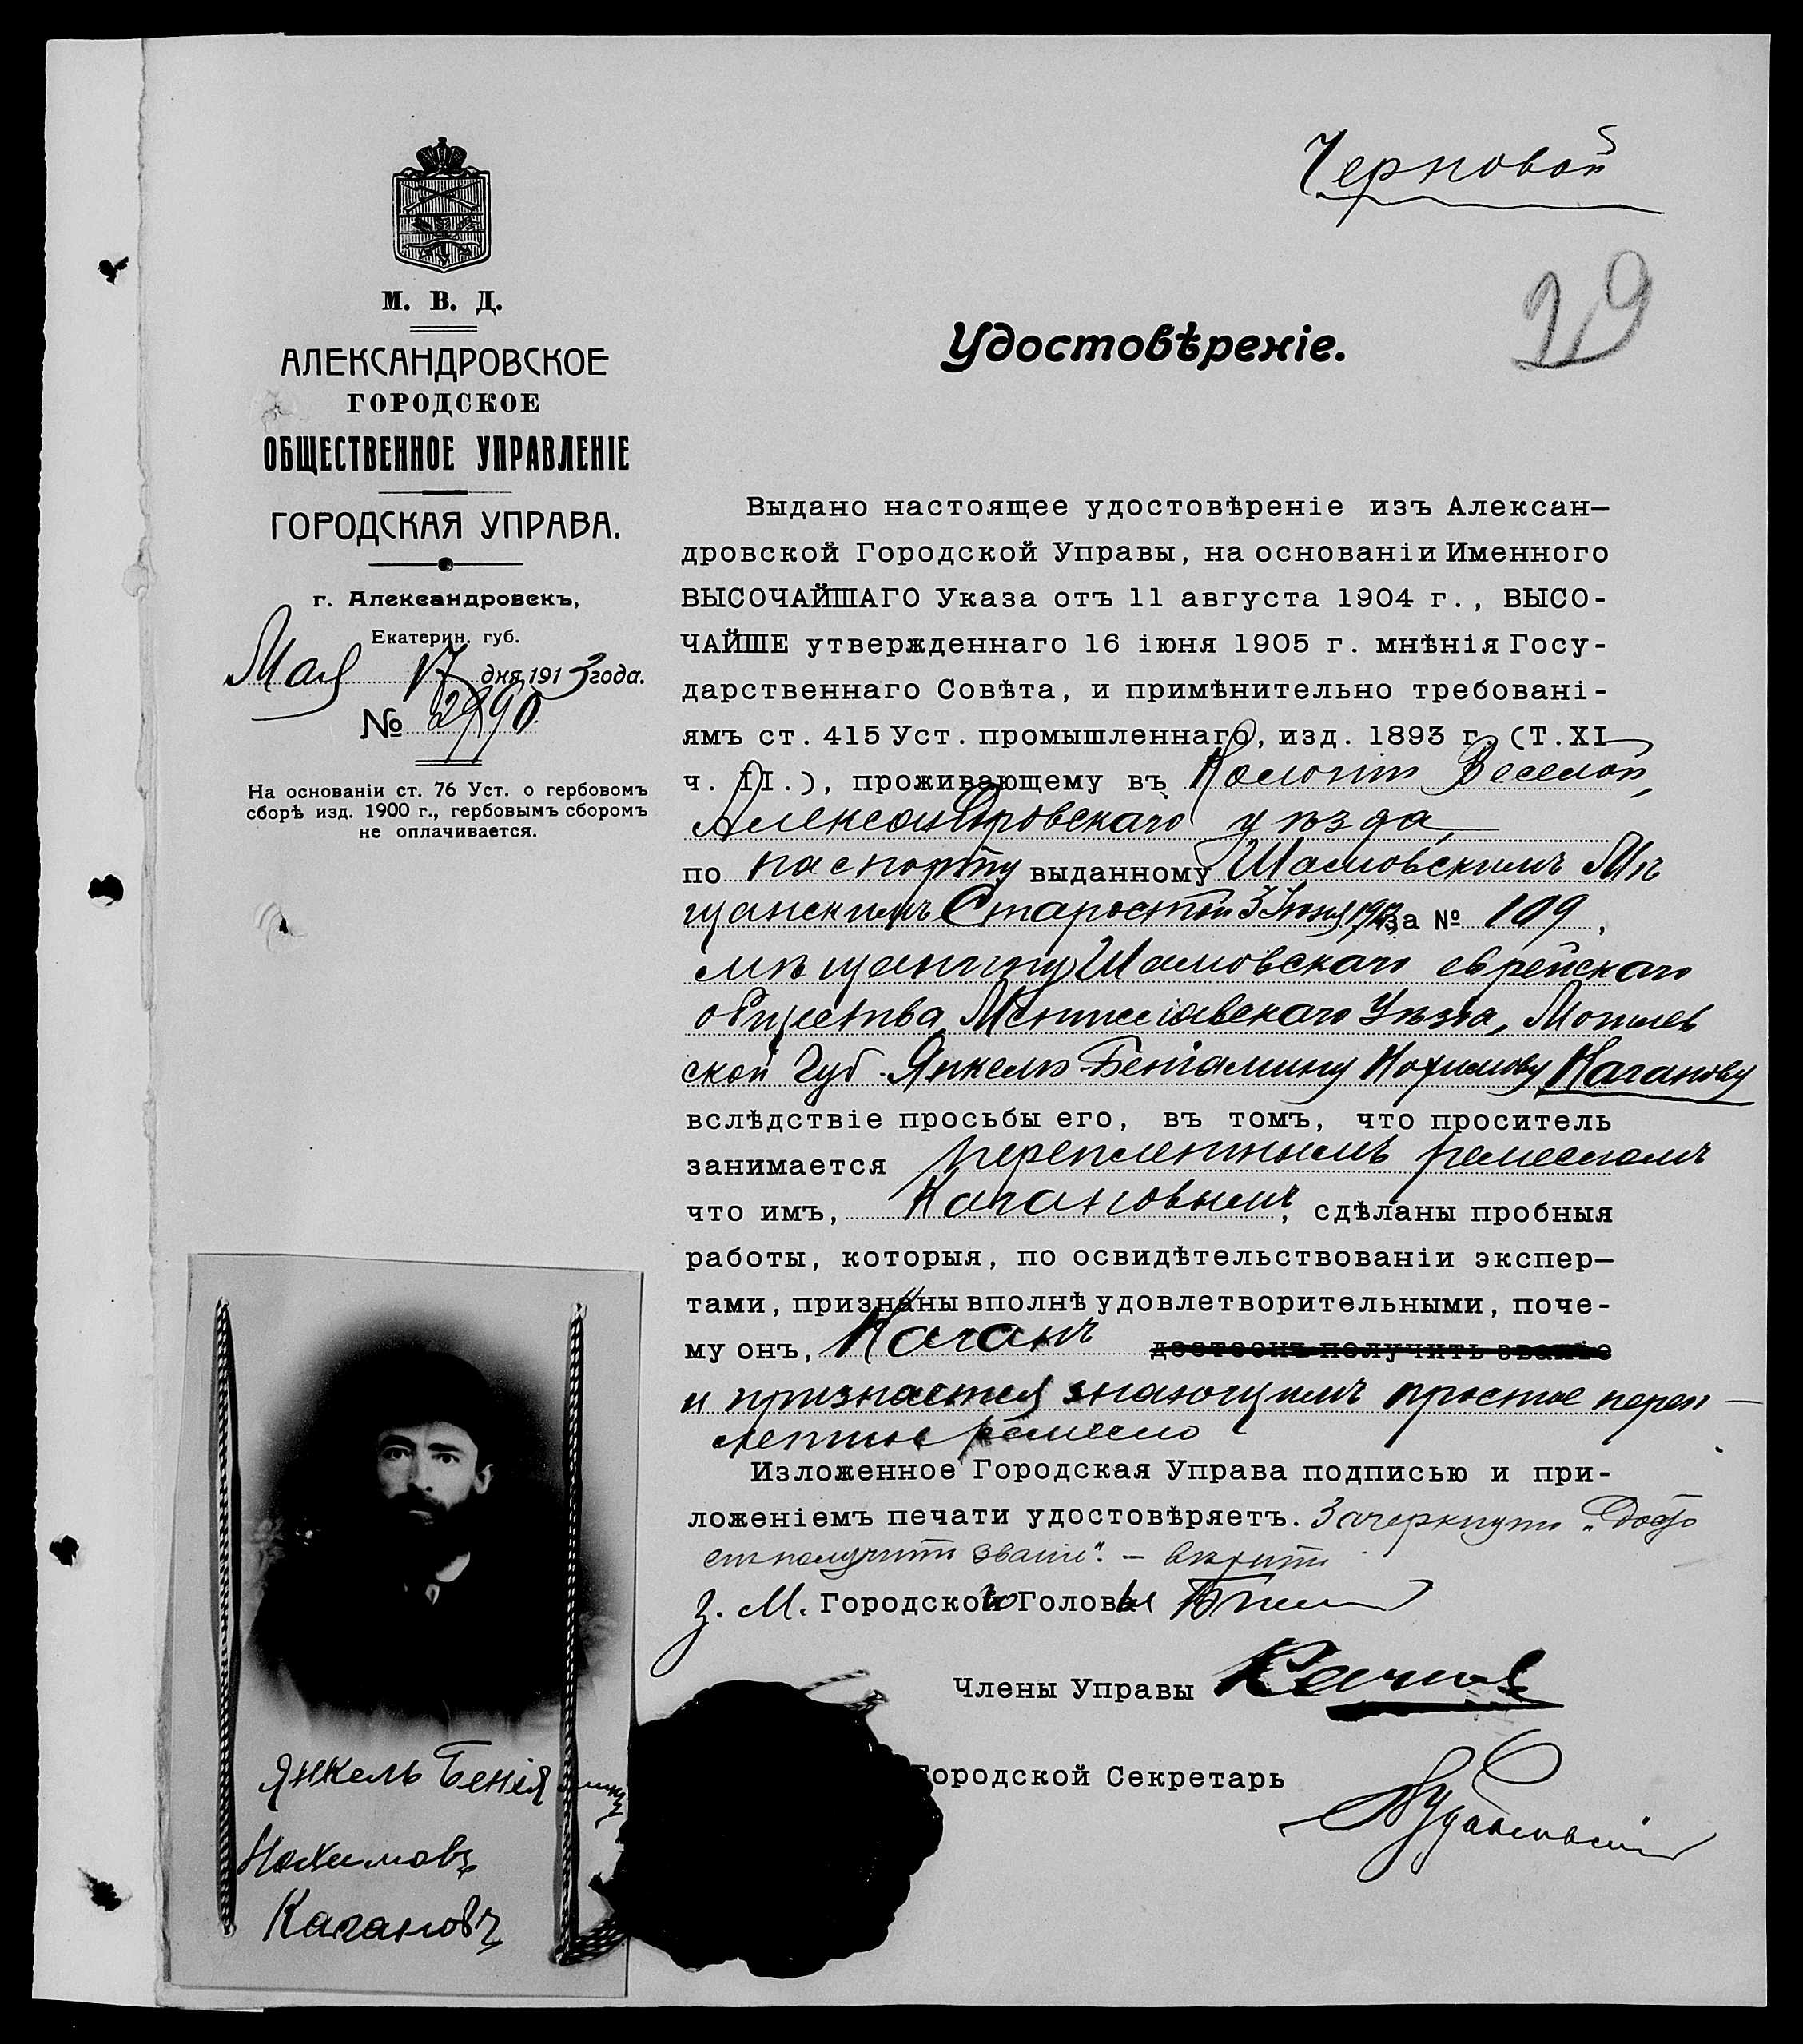 Черновой
29
М. В. Д.
АЛЕКСАНДРОВСКОЕ
ГОРОДСКОЕ
ОБЩЕСТВЕННОЕ УПРАВЛЕНІЕ
ГОРОДСКАЯ УПРАВА.
г. Александровскъ,
Екатерин. губ.
Мая 17 дня 1913 года.
№ 2990
На основаніи ст. 76 Уст. о гербовомъ
сборѣ изд. 1900 г., гербовымъ сборомъ
не оплачивается.
Удостовѣреніе.
Выдано настоящее удостовѣреніе изъ Алексан-
дровской Городской Управы, на основаніи Именного
ВЫСОЧАЙШАГО Указа отъ 11 августа 1904 г., ВЫСО-
ЧАЙШЕ утвержденнаго 16 іюня 1905 г. мнѣнія Госу-
дарственнаго Совѣта, и примѣнительно требовані-
ямъ ст. 415 Уст. промышленнаго, изд. 1893 г. (Т. XI
ч. II.), проживающему въ Колоніи Веселой,
Александровскаго уѣзда,
по паспорту выданному Шамовскимъ Мѣ
щанскимъ Старостой 3 Іюня за № 109,
мѣщанину Шамовскаго еврейскаго
общества, Мстиславскаго Уѣзда, Могилев
ской Губ. Янкелю Беніамину Нохимову Каганову
вслѣдствіе просьбы его, въ томъ, что проситель
занимается переплетнымъ ремесломъ
что имъ, Кагановымъ, сдѣланы пробныя
работы, которыя, по освидѣтельствованіи экспер-
тами, признаны вполнѣ удовлетворительными, поче-
му онъ, Каганъ достоенъ получить званіе
и признается знающимъ простое переп-
летное ремесло
Изложенное Городская Управа подписью и при-
ложеніемъ печати удостовѣряетъ. Зачеркнуто „Досто
енъ получить званіе". -
З. М. Городского Головы
Члены Управы
Городской Секретарь
Янкель Бенія
Нохимовъ
Кагановъ